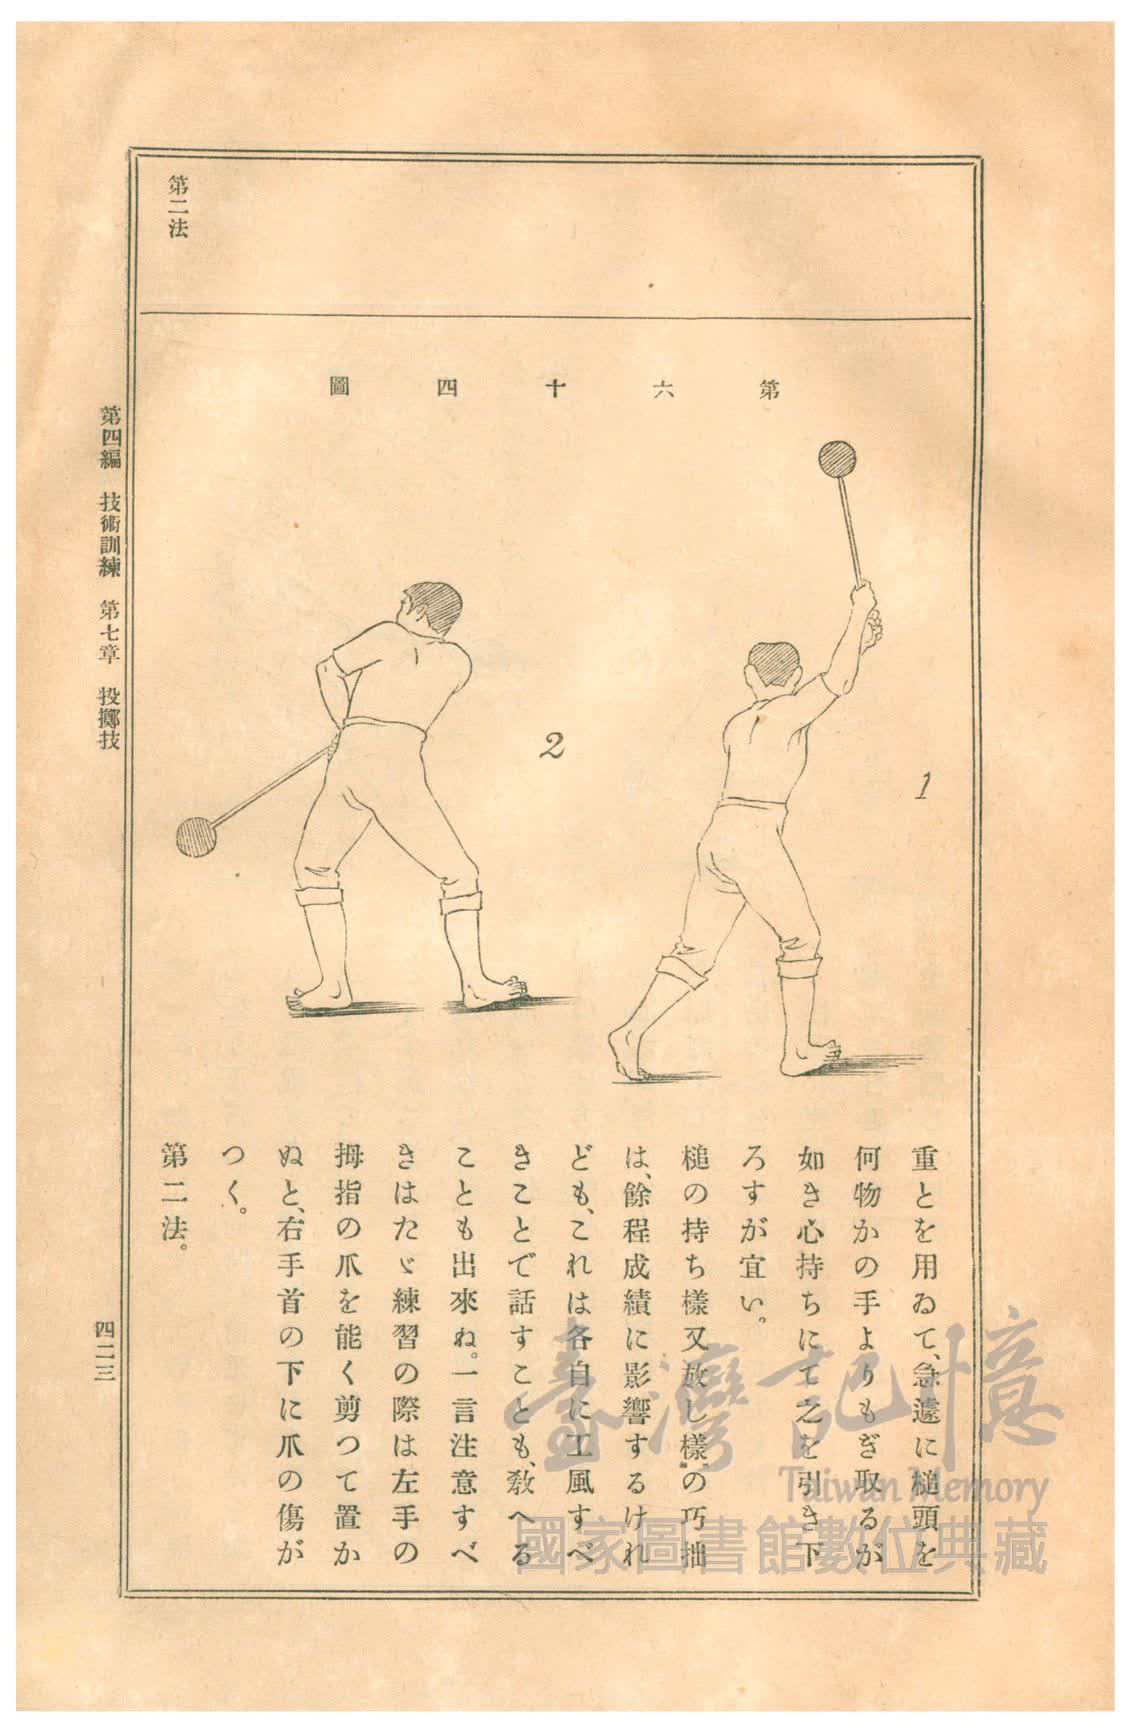 第二法
第六十四圖
1
2
重とを用ゐて、急遽に槌頭を
何物かの手よりもぎ取るが
如き心持ちにて之を引き下
ろすが宜い。
槌の持ち樣又放し樣の巧拙
は、餘程成績に影響するけれ
ども、これは各自に工風すべ
きことで話すことも、敎へる
ことも出來ね。一言注意すべ
きはたゞ練習の際は左手の
拇指の爪を能く剪つて置か
ぬと、右手首の下に爪の傷が
つく。
第二法。
第四編　技術訓練　第七章　投擲技
四二三
臺灣記憶
Taiwan Memory
國家圖書館數位典藏